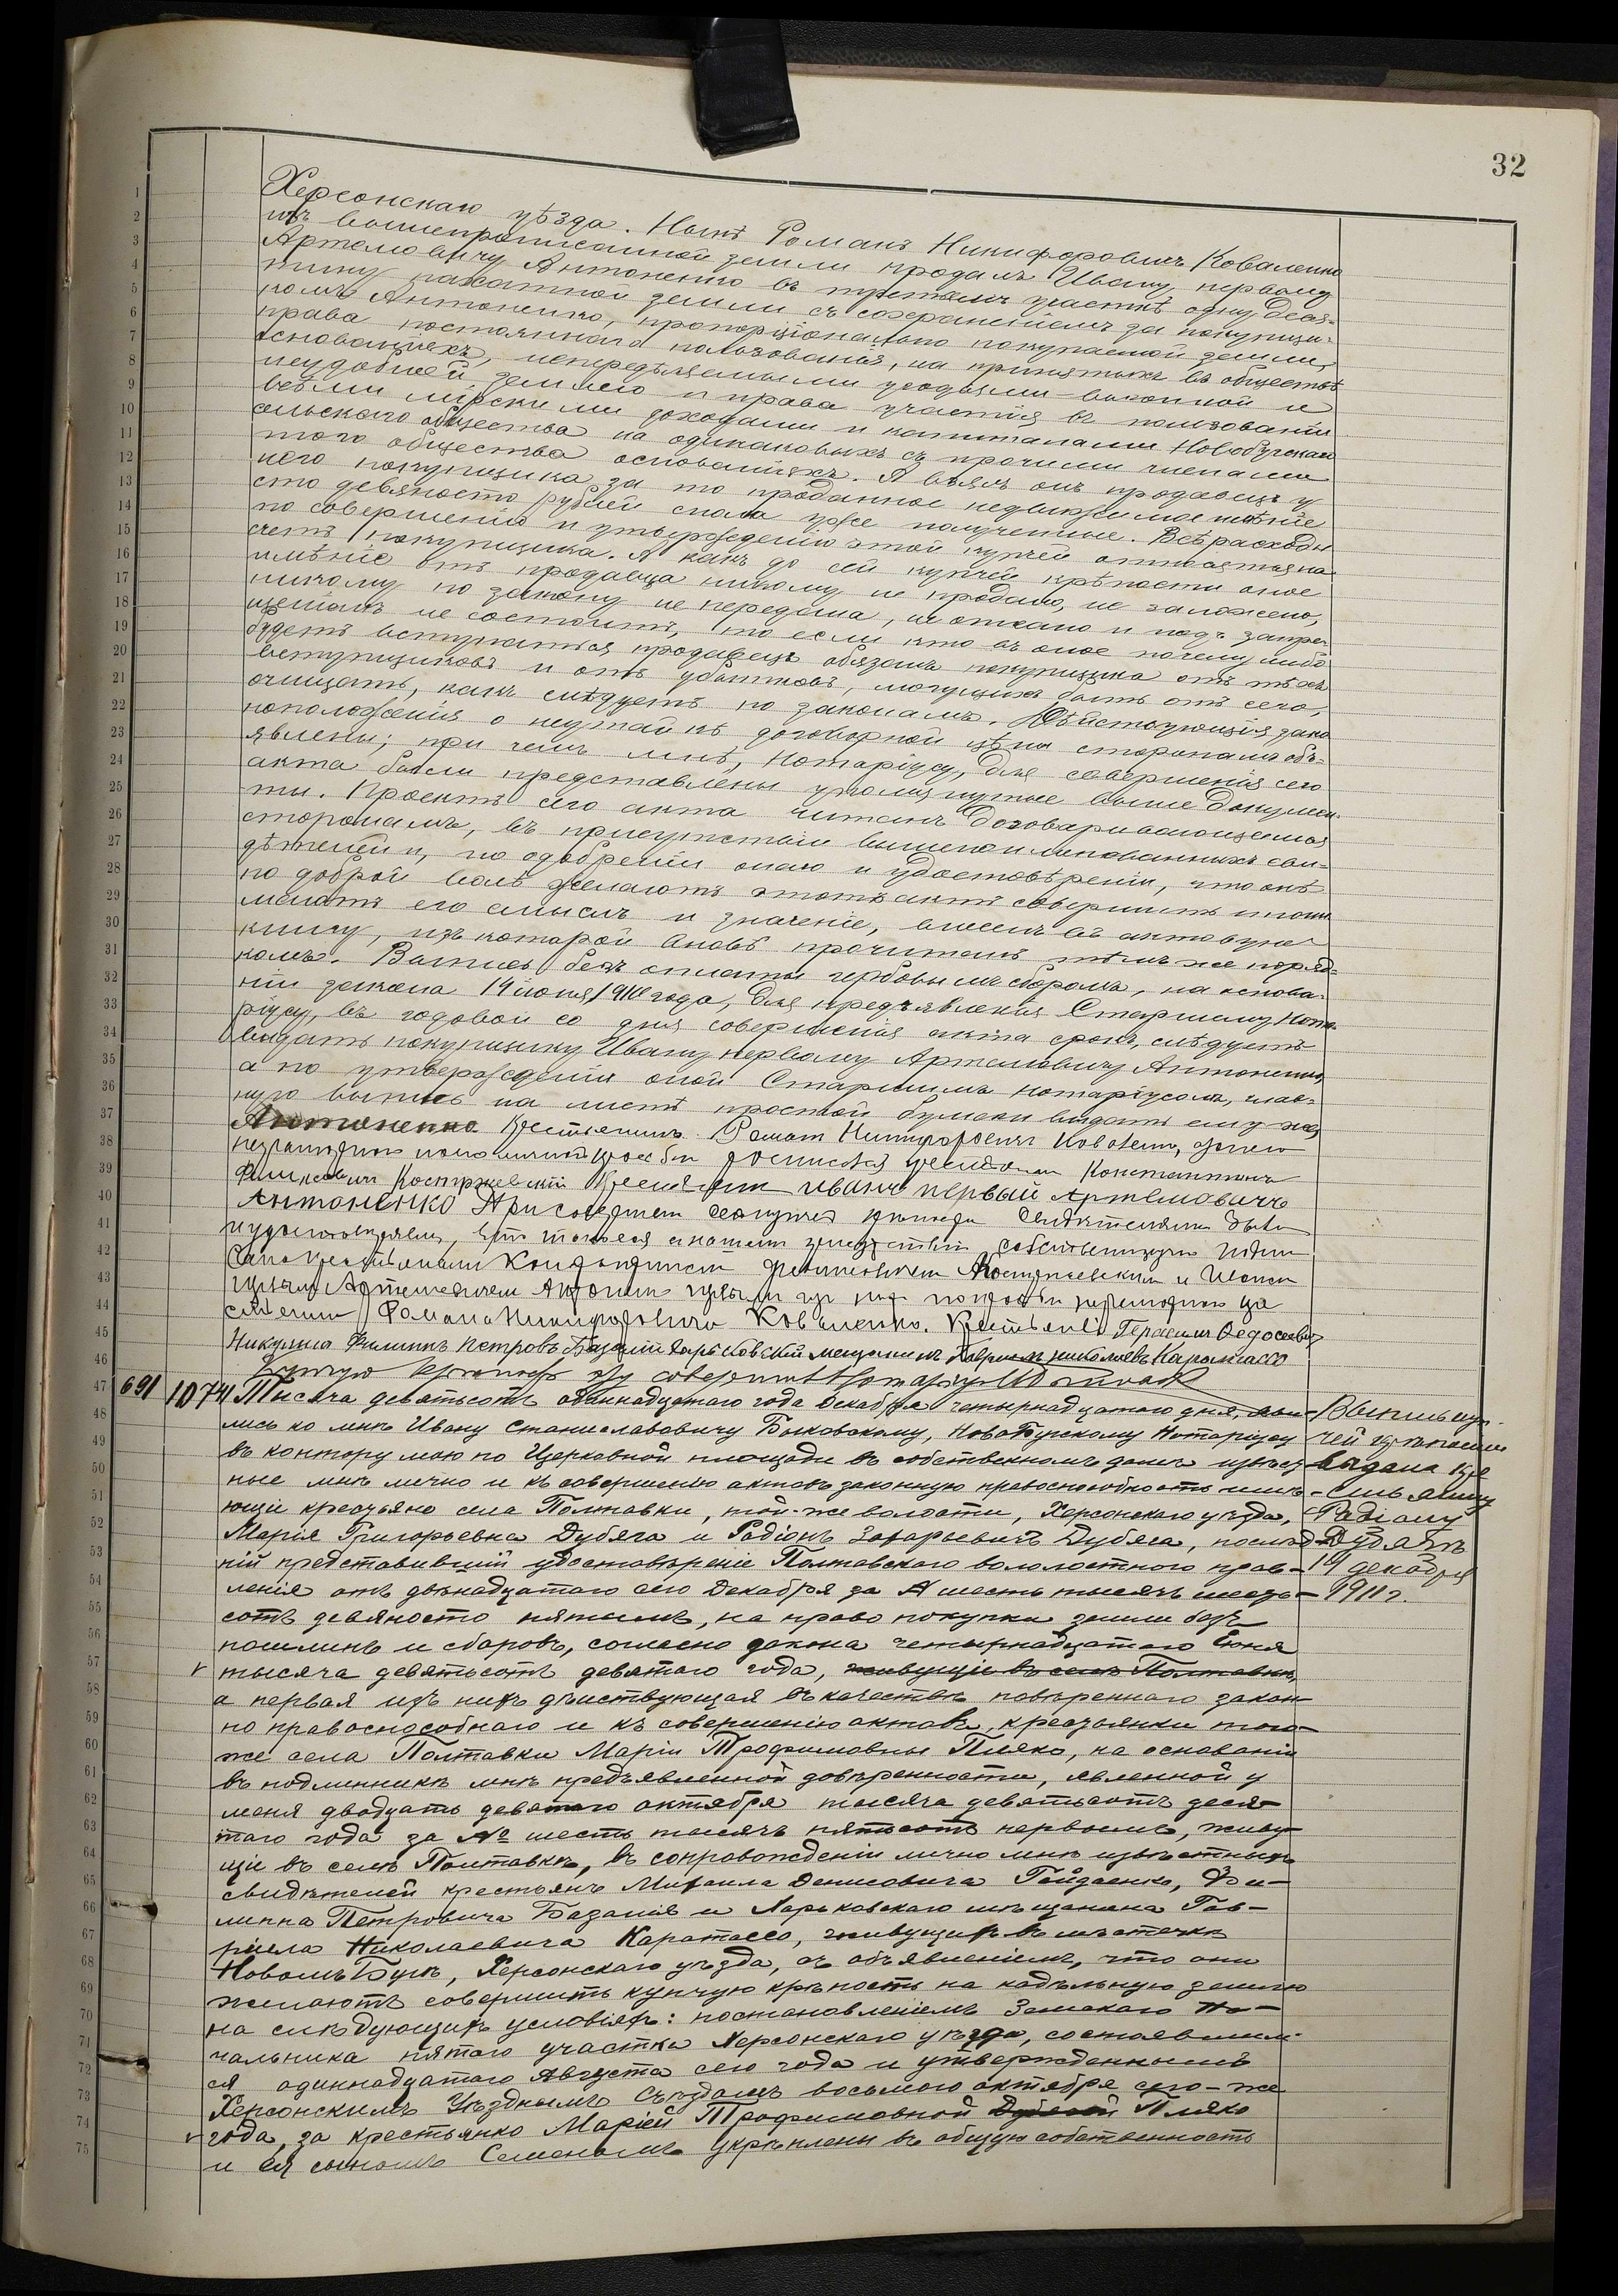 32
Херсонскаго уѣзда. Нынѣ Романъ Никифоровичъ Коваленко
изъ вышепрописанной земли продалъ Ивану первому
Артемовичу Антоненко въ третьемъ участкѣ одну деся-
тину пахатной земли съ сохраненіемъ за покупщи-
комъ Антоненко, пропорціонально покупаемой земли,
права постояннаго пользованія, на принятыхъ въ обществѣ
основаніяхъ, непередѣляемыми угодьями выгонной и
неудобной землею и права участія въ пользованіи
всѣми мірскими доходами и капиталами Новобугскаго
сельскаго общества на одинаковыхъ съ прочими членами
того общества основаніяхъ. А взялъ онъ продавецъ у
него покупщика за то проданное недвижимое имѣніе
сто девяносто рублей сполна уже полученные. Всѣ расходы
по совершенію и утвержденію этой купчей относятся на
счетъ покупщика. А какъ до сей купчей крѣпости оное
имѣніе отъ продавца никому не продано, не заложено,
никому по закону не передано, не отказано и подъ запре-
щеніемъ не состоитъ, то если кто въ оное почему либо
будетъ вступаться продавецъ обязанъ покупщика отъ тѣхъ
вступщиковъ и отъ убытковъ, могущихъ быть отъ сего,
очищать, какъ слѣдуетъ по законамъ. Дѣйствующія зако
ноположенія о неутайкѣ договорной цѣны сторонамъ объ-
явлены; при чемъ мнѣ, Нотаріусу, для совершенія сего
акта были представлены упомянутые выше докумен-
ты. Проектъ сего акта читанъ договаривающимся
сторонамъ, въ присутствіи вышепоименованныхъ сви-
дѣтелей и, по одобреніи онаго и удостовѣреніи, что онѣ
по доброй волѣ желаютъ этотъ актъ совершить и пони
маютъ его смыслъ и значеніе, внесенъ въ актовую
книгу, изъ которой вновь прочитанъ тѣмъ же поряд-
комъ. Выпись безъ оплаты гербовымъ сборомъ, на основа-
ніи закона 14 іюня 1910 года, для предъявленія Старшему Нота-
ріусу, въ годовой со дня совершенія акта срокъ, слѣдуетъ
выдать покупщику Ивану первому Артемовичу Антоненко,
а по утвержденіи оной Старшимъ нотаріусомъ, глав-
ную выпись на листѣ простой бумаги выдать ему же
Антоненко Крестьянинъ Романъ Никифоровичъ Коваленко, а за него
неграмотнаго по его личной просьбѣ росписался крестьянинъ Константинъ
Костржевскій Крестьянинъ Иванъ первый Артемовичъ
Антоненко При совершеніи сей купчей крѣпости свидѣтелями были
Романа Никифоровича Коваленко. Крестьянѣ Герасимъ Федосеевичъ
Никулина Филиппъ Петровъ Базалій Харьковскій мещанинъ Гавріилъ Николаевъ Каратассо
Купчую крѣпость эту совершилъ Нотаріусъ
691 1074 Тысяча девятьсотъ одиннадцатаго года Декабря четырнадцатаго дня, яви-
лись ко мнѣ Ивану Станиславовичу Быковскому, НовоБугскому Нотаріусу
въ контору мою по Церковной площади въ собственномъ домѣ извѣст-
ные мнѣ лично и къ совершенію актовъ законную правоспособность имѣ-
ющіе крестьяне села Полтавки, той-же волости, Херсонскаго уѣзда,
Марія Григорьевна Дубяга и Радіонъ Захарьевичъ Дубяга, послѣд-
ній представившій удостовѣреніе Полтавскаго вололостного прав-
ленія отъ двѣнадцатаго сего Декабря за № шесть тысячъ шесть-
сотъ девяносто пятымъ, на право покупки земли безъ
пошлинъ и сборовъ, согласно закона четырнадцатаго Іюня
тысяча девятьсотъ девятаго года, живущіе въ селѣ Полтавкѣ,
а первая изъ нихъ дѣйствующая въ качествѣ повѣреннаго закон
но правоспособнаго и къ совершенію актовъ, крестьянки того-
же села Полтавки Маріи Трофимовны Пляко, на основаніи
въ подлинникѣ мнѣ предъявленной довѣренности, явленной у
меня двадцать девятаго октября тысяча девятьсотъ деся-
таго года за № шесть тысячъ пятьсотъ первымъ, живу-
щіе въ селѣ Полтавкѣ, въ сопровожденіи лично мнѣ извѣстныхъ
свидѣтелей крестьянъ Михаила Денисовича Гайдаенко, Фи-
липпа Петровича Базалія и Харьковскаго мѣщанина Гав-
ріила Николаевича Каратассо, живущихъ въ мѣстечкѣ
Новомъ Бугѣ, Херсонскаго уѣзда, съ объявленіемъ, что они
желаютъ совершить купчую крѣпость на надѣльную землю
на слѣдующихъ условіяхъ: постановленіемъ Земскаго На-
чальника пятаго участка Херсонскаго уѣзда, состоявшим-
ся одиннадцатаго Августа сего года и утвержденнымъ
Херсонскимъ Уѣзднымъ Съѣздомъ восьмого октября сего-же
года, за крестьянко Маріей Трофимовной Дубягой Пляко
и ея сыномъ Семеномъ укрѣплены въ общую собственность
Выпись куп-
чей крѣпости
выдана кре
стьянину
Радіону
Дубягѣ
19 декабря
1911 г.